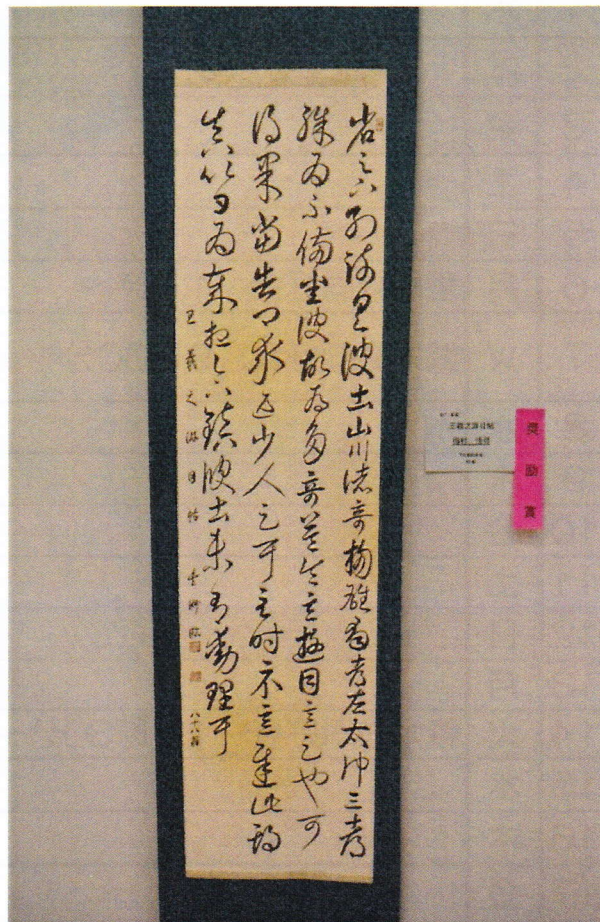 省足下別疏具彼土山川諸奇揚雄蜀都左太沖三都
殊為不備悉彼故為多奇益令其遊目意足也可
得果當告卿求迎少人足耳至時示意遲此期
真以日為歲想足下鎮彼土未有動理耳
王羲之游目帖 臨 八十八翁
王羲之游目帖
奨励賞